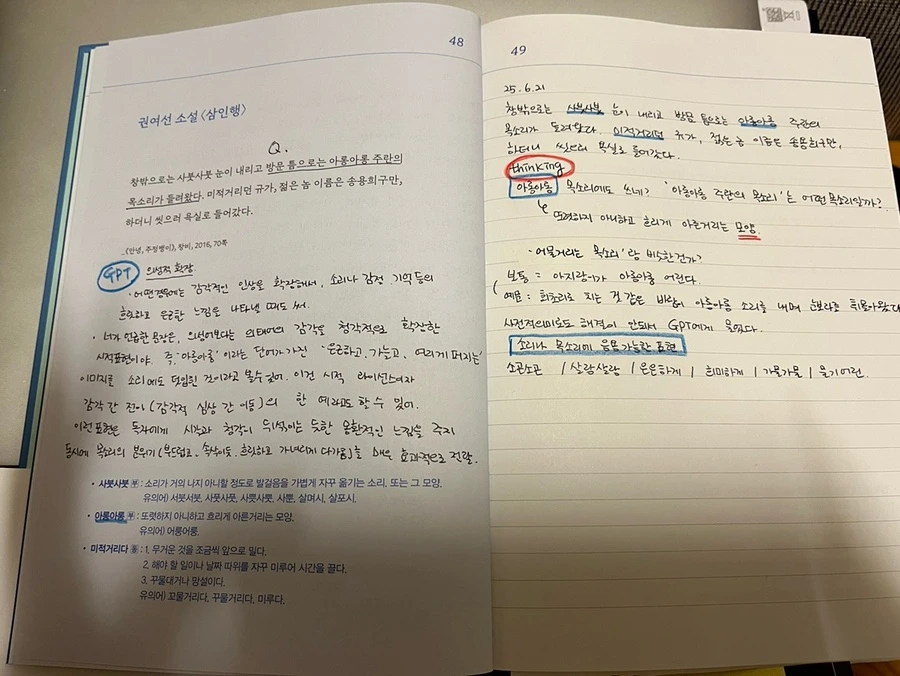 48
권여선 소설 <삼인행>
Q.
창밖으로는 사붓사붓 눈이 내리고 방문 틈으로는 아롱아롱 주란의
목소리가 들려왔다. 미적거리던 규가, 젊은 놈 이름은 송용희구만,
하더니 씻으러 욕실로 들어갔다.
_《안녕, 주정뱅이》, 창비, 2016, 70쪽
GPT 의성적 확장.
· 어떤 경우에는 감각적인 인상을 확장해서, 소리나 감정, 기억 등의
흐릿하고 은근한 느낌을 나타낼 때도 써.
· 네가 언급한 문장은, 의성어보다는 의태어의 감각을 청각적으로 확장한
시적표현이야. 즉, '아롱아롱' 이라는 단어가 가진 '은은하고, 가늘고, 여리게 퍼지는'
이미지를 소리에도 덧입힌 것이라고 볼수있어. 이건 시적 라이선스이자
감각 간 전이 (감각적 심상 간 이동)의 한 예라고도 할 수 있어.
이런 표현은 독자에게 시각과 청각이 뒤섞이는 듯한 몽환적인 느낌을 주지
동시에 목소리의 분위기 (부드럽고, 속삭이듯, 흐릿하고 가녀리게 다가옴)를 매우 효과적으로 전달.
• 사붓사붓 부: 소리가 거의 나지 아니할 정도로 발걸음을 가볍게 자꾸 옮기는 소리. 또는 그 모양.
유의어) 서붓서붓, 사풋사풋, 사뿟사뿟, 사뿐, 살며시, 살포시.
• 아롱아롱 부: 또렷하지 아니하고 흐리게 아른거리는 모양.
유의어) 어룽어룽.
• 미적거리다 동: 1. 무거운 것을 조금씩 앞으로 밀다.
2. 해야 할 일이나 날짜 따위를 자꾸 미루어 시간을 끌다.
3. 꾸물대거나 망설이다.
유의어) 꼬물거리다, 꾸물거리다, 미루다.
49
25.6.21
창밖으로는 사붓사붓 눈이 내리고 방문 틈으로는 아롱아롱 주란의
목소리가 들려왔다. 미적거리던 규가, 젊은 놈 이름은 송용희구만,
하더니 씻으러 욕실로 들어갔다.
thinking
아롱아롱 목소리에도 쓰네? '아롱아롱 주란의 목소리'는 어떤 목소리일까?
또렷하지 아니하고 흐리게 아른거리는 모양.
· 어물거리는 목소리'랑 비슷한건가?
보통 : 아지랑이가 아롱아롱 어린다.
예문 : 회초리로 치는 것 같은 바람이 아롱아롱 소리를 내며
사전적의미로도 해결이 안되서 GPT에게 물었다.
소리나 목소리에 응용 가능한 표현
소곤소곤 | 살랑살랑 | 은은하게 | 희미하게 | 가물가물 | 물기어린.